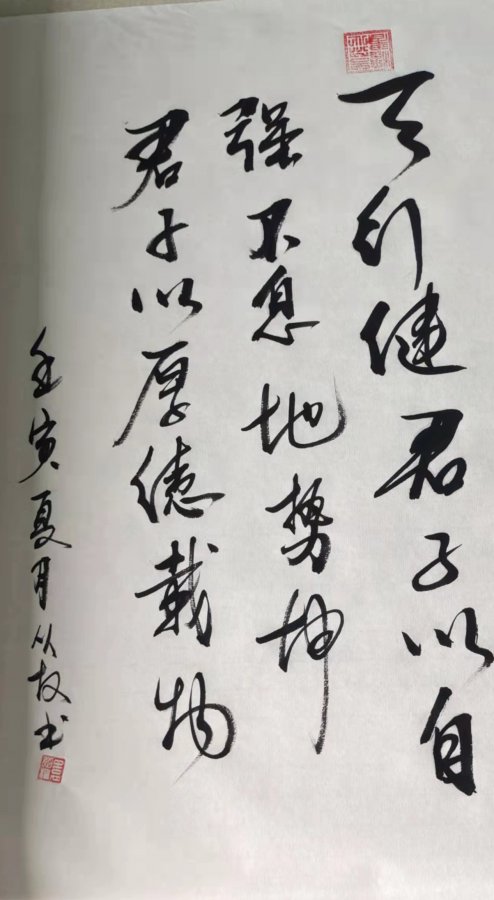 天行健君子以自
强不息地势坤
君子以厚德载物
壬寅夏月从牧书